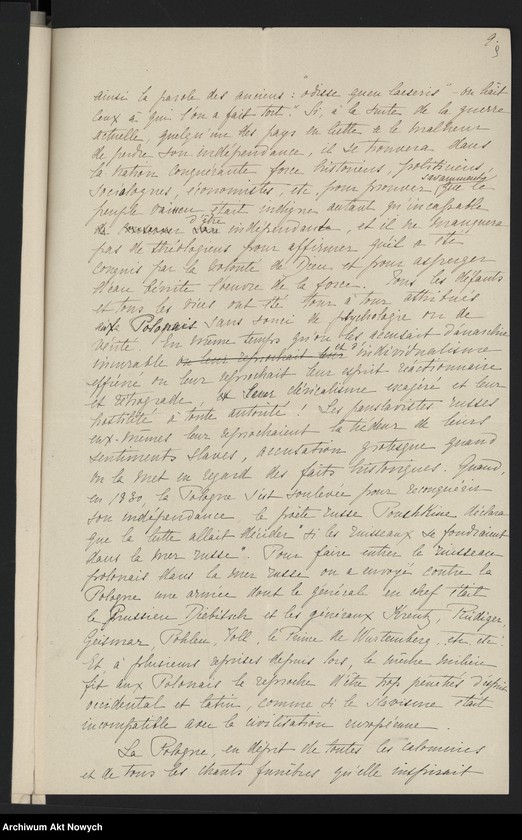 9.
9
ainsi la parole des anciens : "odisse quem laeseris" - on haït
ceux à qui l'on a fait tort". Si, à la suite de la guerre
actuelle, quelqu'un des pays en lutte a le malheur
de perdre son indépendance, il se trouvera dans
la nation conquérante force historiens, politiciens,
sociologues, économistes, etc, pour prouver savamment que le
peuple vaincu était indigne autant qu'incapable
d'être indépendant, et il ne manquera
pas de théologiens pour affirmer qu'il a été
conquis par la volonté de Dieu et pour asperger
d'eau bénite l'oeuvre de la force. Tous les défauts
et tous les vices ont été tour à tour attribués
aux Polonais sans souci de psychologie ou de
vérité. En même temps qu'on les accusait d'anarchie
incurable on leur reprochait et d'individualisme
effréné on leur reprochait leur esprit réactionnaire
et rétrograde, leur cléricalisme exagéré et leur
hostilité à toute autorité! Les panslavistes russes
eux-mêmes leur reprochaient la tiédeur de leurs
sentiments slaves, accusation grotesque quand
on la met en regard des faits historiques. Quand,
en 1830, la Pologne s'est soulevée pour reconquérir
son indépendance le poète russe Pouchkine déclara
que la lutte allait décider "si les ruisseaux se fondraient
dans la mer russe". Pour faire entrer le ruisseau
polonais dans la mer russe on a envoyé contre la
Pologne une armée dont le général en chef était
le Prussien Diebitsch et les généraux Kreutz, Rüdiger,
Geismar, Pahlen, Toll, le Prince de Wurtemberg, etc. etc.
Et à plusieurs reprises depuis lors, le même milieu
fit aux Polonais le reproche d'être trop pénétrés d'esprit
occidental et latin, comme si le slavisme était
incompatible avec la civilisation européenne.
La Pologne, en dépit de toutes les calomnies
et de tous les chants funèbres qu'elle inspirait
Archiwum Akt Nowych